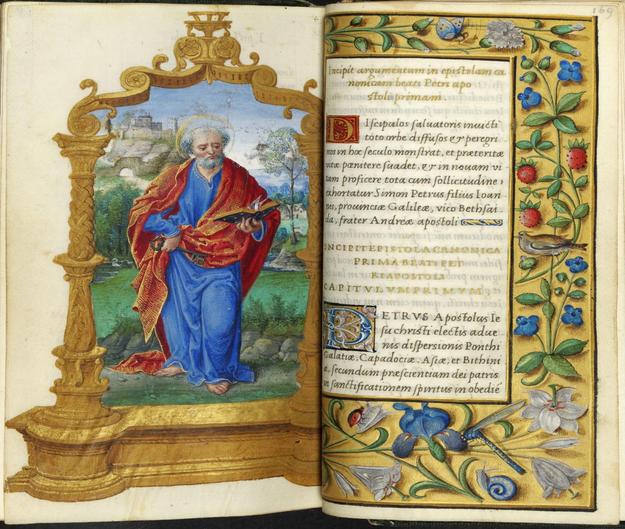 169
Incipit argumentum in epistolam ca
nonicam beati Petri apo
stoli primam.
DIscipulos saluatoris inuicti
toto orbe diffusos & peregri
nos in hoc seculo monstrat, et præteritæ
uitæ pœnitere suadet, & in nouam ui
tam proficere tota cum sollicitudine
exhortatur Simon Petrus filius Ioan
nis, prouinciæ Galileæ, vico Bethsai
da, frater Andreæ apostoli
INCIPIT EPISTOLA CANONICA
PRIMA BEATI PET
RI APOSTOLI
CAPITVLVM PRIMVM
PETRVS Apostolus Ie
su christi electis adue
nis dispersionis Ponthi
Galatiæ, Capadociæ, Asiæ, et Bithini
secundum præscientiam dei patris
in sanctificationem spiritus in obediē